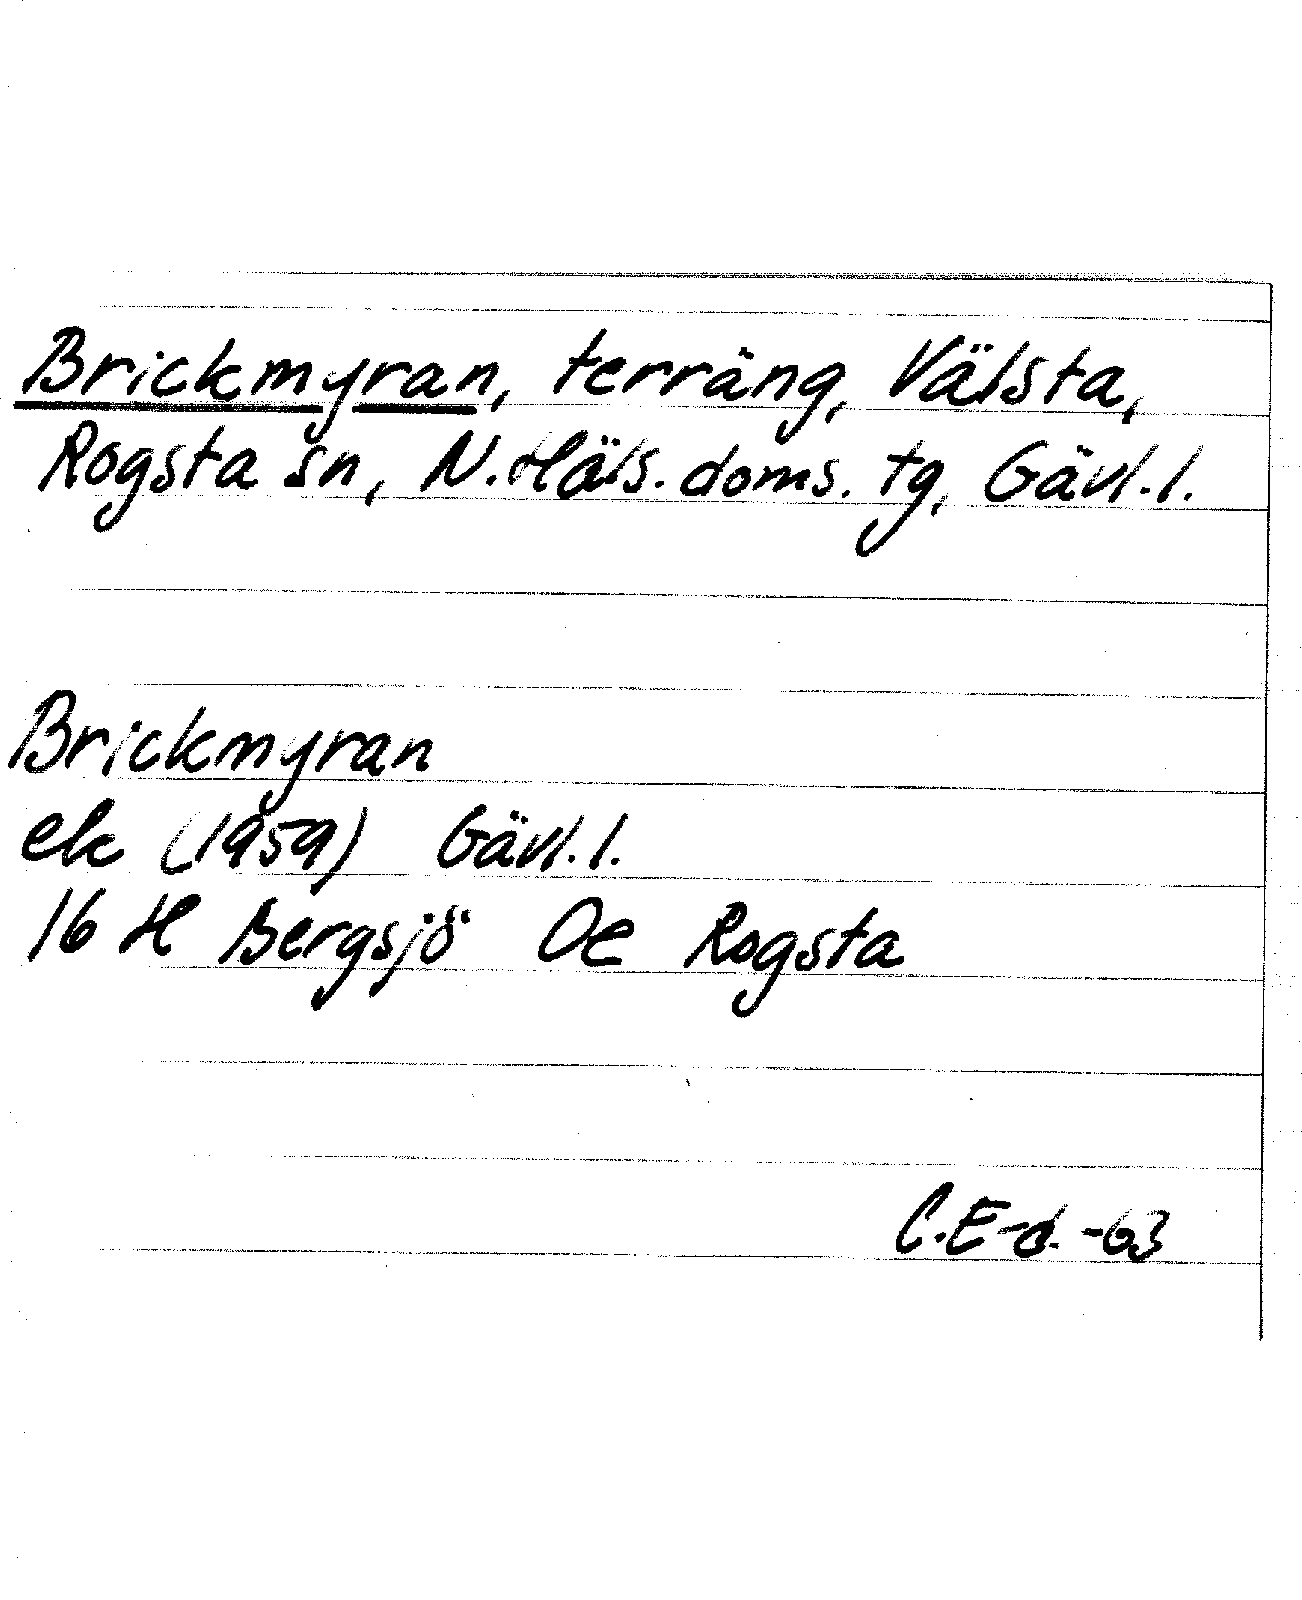 Brickmyran, terräng, Välsta,
Rogsta sn, N. Häls. doms. tg, Gävl. l.
Brickmyran
ek (1959) Gävl. l.
16 H Bergsjö Oe Rogsta
C.E-d. -63